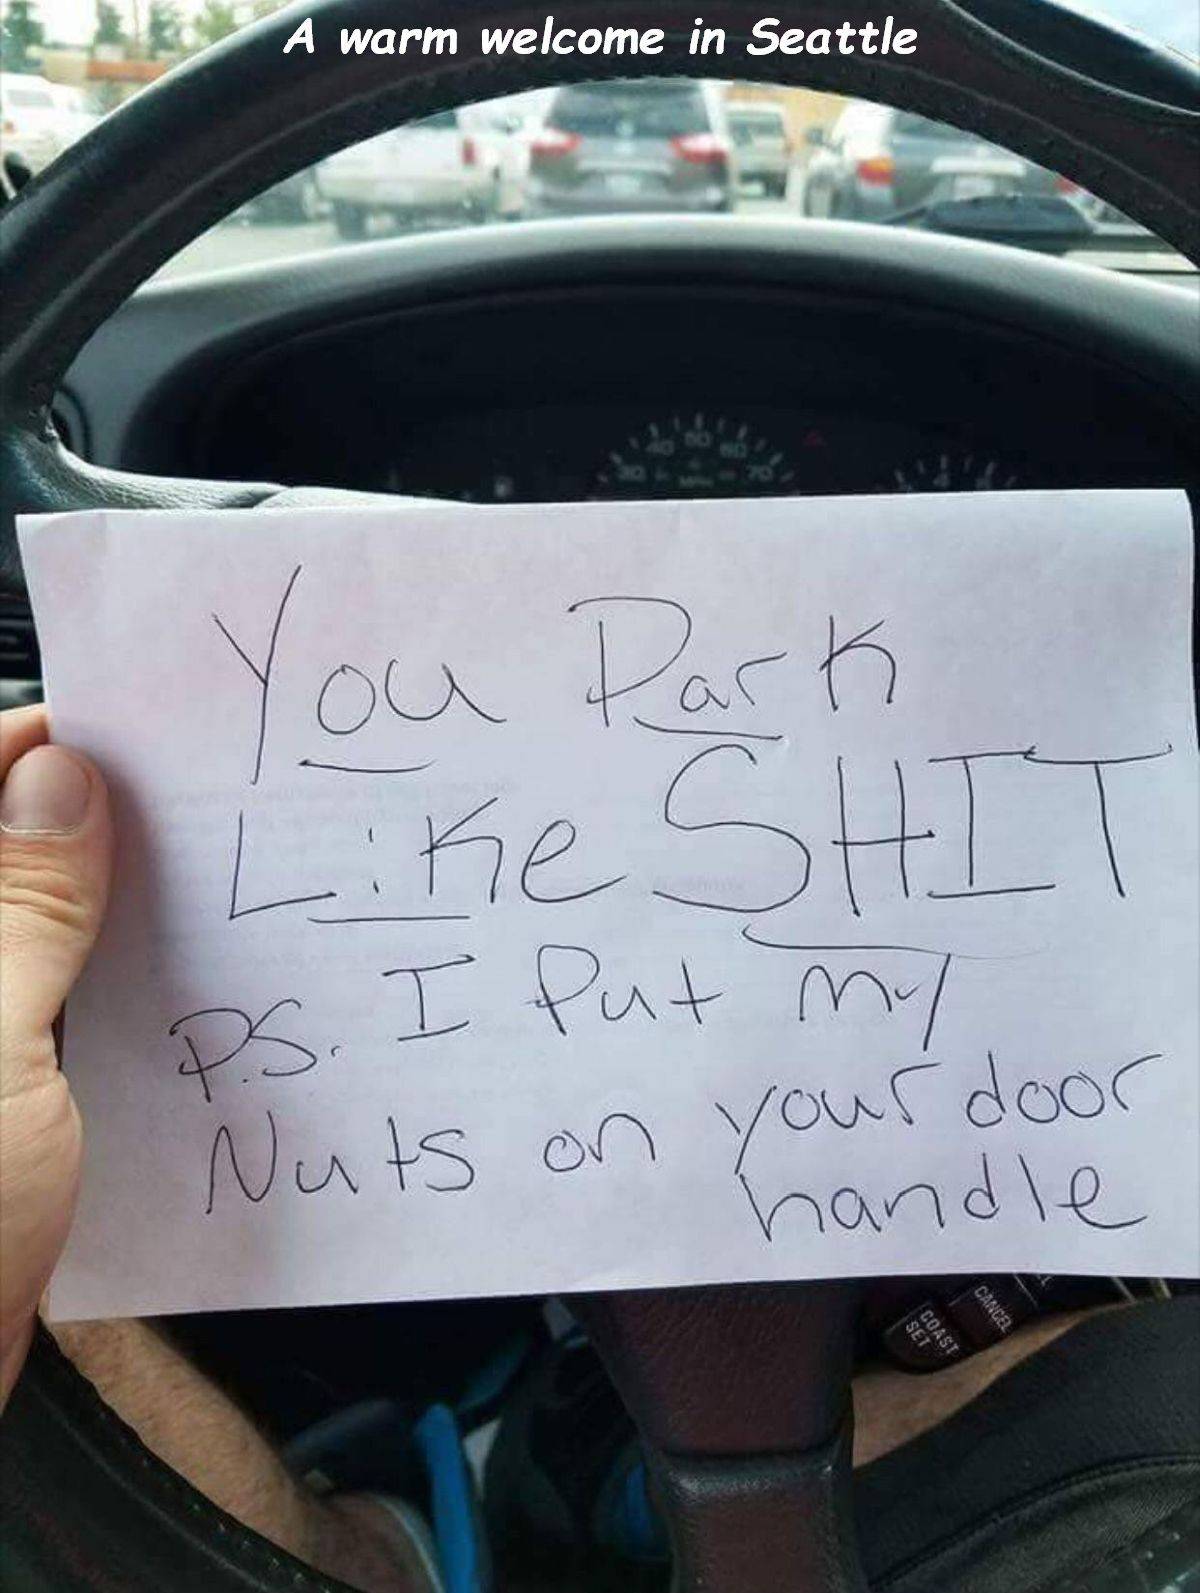 A warm welcome in Seattle
40 50 60
30 MPH 70
You Park
Like SHIT
P.S. I Put my
Nuts on your door
handle
CANCEL
COAST
SET